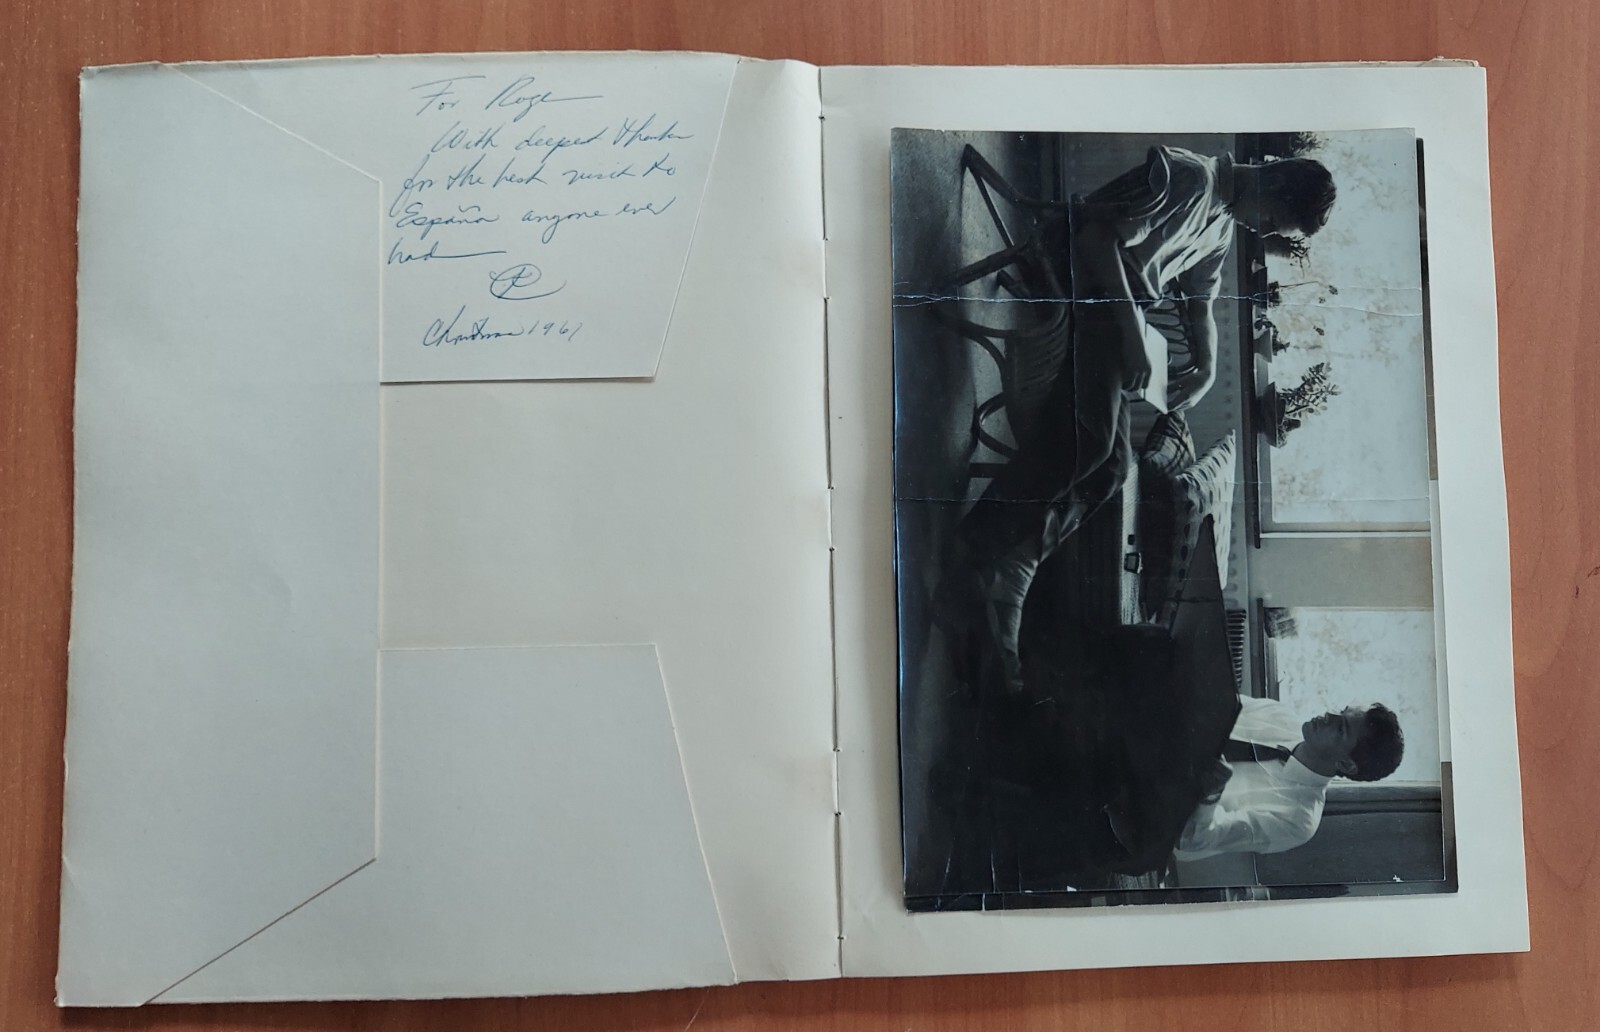 For Roge
With deepest thanks
for the best visit to
España anyone ever
had
Christmas 1961